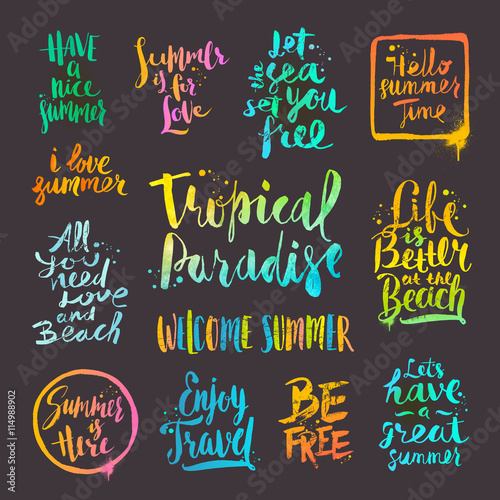 HAVE
a
nice
summer
Summer
is for
Love
Let
the sea
set you
free
Hello
summer
Time
i love
summer
Tropical
Paradise
Life
is
Better
at the
Beach
All
You
need
Love
and
Beach
WELCOME SUMMER
Summer
is
Here
Enjoy
Travel
BE
FREE
Lets
have
a
great
summer
Adobe Stock | #114988902